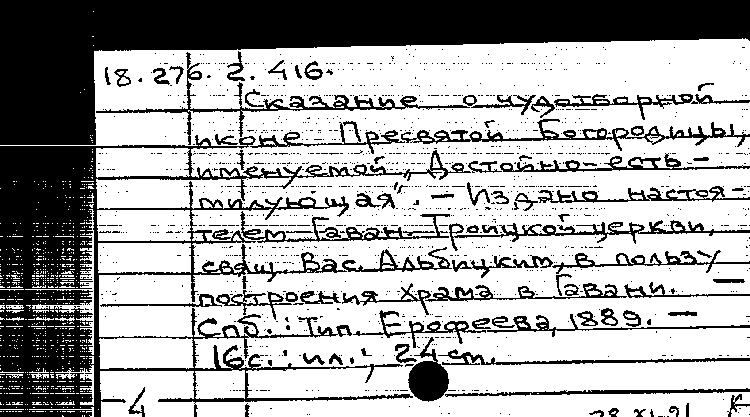 18. 276. 2. 416.
Сказание о чудотворной
иконе Пресвятой Богородицы,
именуемой „Достойно-есть-
милующая". — Издано настоя-
телем Гаван. Троицкой церкви,
свящ. Вас. Альбицким, в пользу
построения храма в Гавани. —
Спб.: Тип. Ерофеева, 1889. —
16 с.: ил.; 24 cm.
4